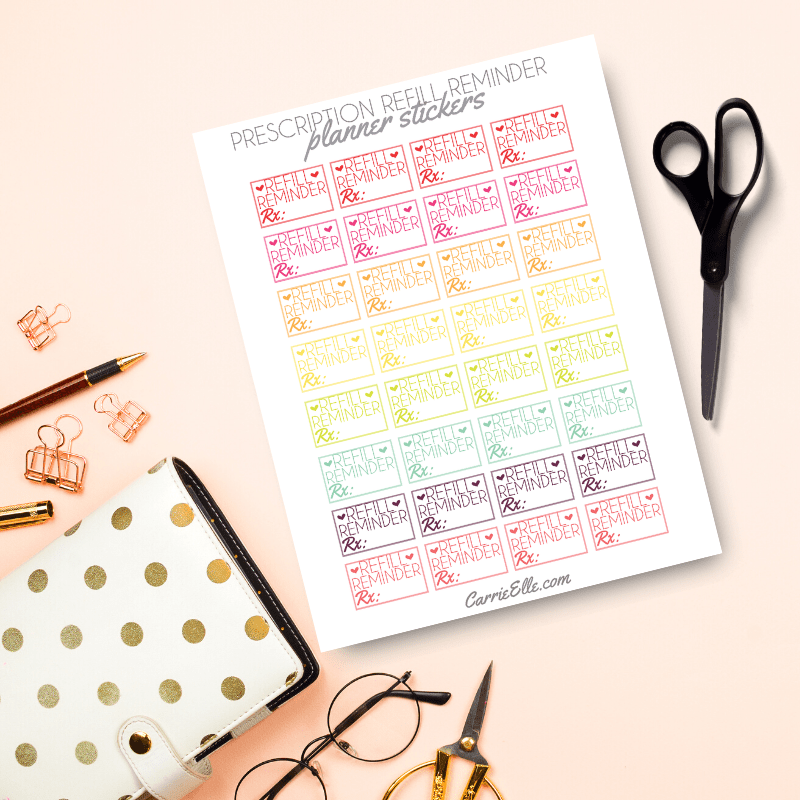 PRESCRIPTION REFILL REMINDER
planner stickers
REFILL REFILL REFILL REFILL
REMINDER REMINDER REMINDER REMINDER
Rx: Rx: Rx: Rx:
REFILL REFILL REFILL REFILL
REMINDER REMINDER REMINDER REMINDER
Rx: Rx: Rx: Rx:
REFILL REFILL REFILL REFILL
REMINDER REMINDER REMINDER REMINDER
Rx: Rx: Rx: Rx:
REFILL REFILL REFILL REFILL
REMINDER REMINDER REMINDER REMINDER
Rx: Rx: Rx: Rx:
REFILL REFILL REFILL REFILL
REMINDER REMINDER REMINDER REMINDER
Rx: Rx: Rx: Rx:
REFILL REFILL REFILL REFILL
REMINDER REMINDER REMINDER REMINDER
Rx: Rx: Rx: Rx:
REFILL REFILL REFILL REFILL
REMINDER REMINDER REMINDER REMINDER
Rx: Rx: Rx: Rx:
REFILL REFILL REFILL REFILL
REMINDER REMINDER REMINDER REMINDER
Rx: Rx: Rx: Rx:
CarrieElle.com